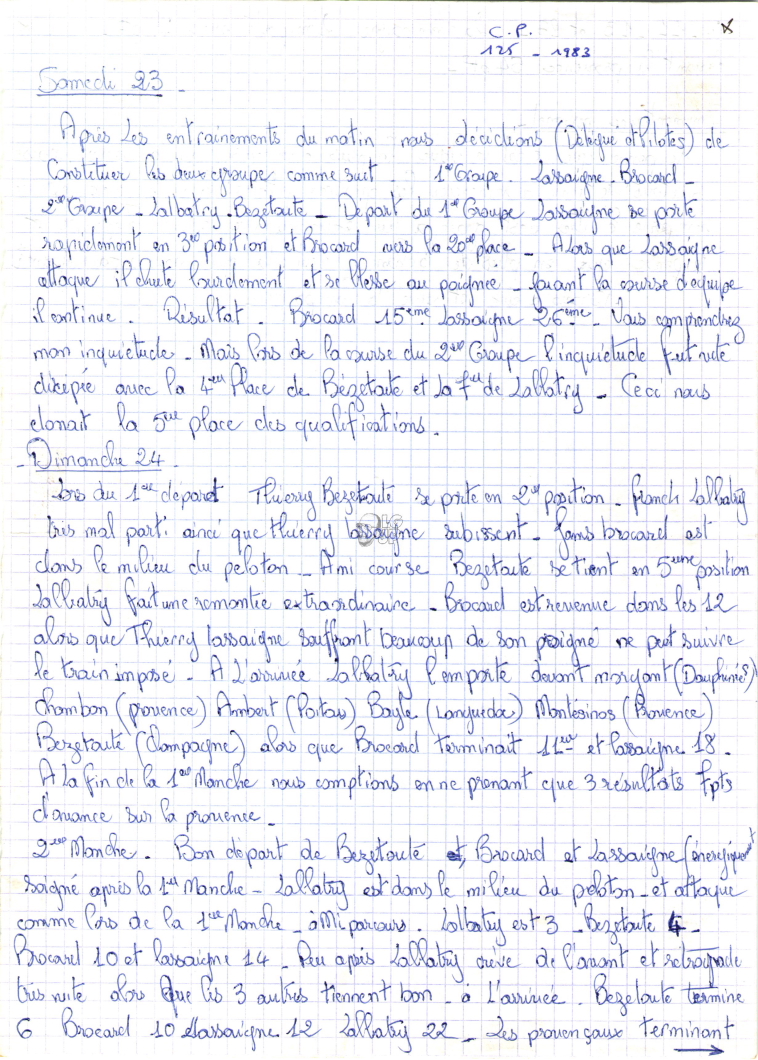 C.P.
125 - 1983
Samedi 23 -
Après Les entrainements du matin nous décidions (Délégué et Pilotes) de
Constituer les deux groupe comme suit. 1er Groupe. Lassaigne - Brocard -
2eme Groupe - Lalbatry - Bezetoute - Depart du 1er Groupe Lassaigne se porte
rapidement en 3eme position et Brocard vers la 20eme place - Alors que Lassaigne
attaque il chute lourdement et se blesse au poignée - faisant la course d'equipe
il continue. Résultat. Brocard 15eme Lassaigne 26eme - Vous comprendrez
mon inquietude - Mais lors de la course du 2eme Groupe l'inquietude fut vite
dicipée avec la 4eme Place de Bézetoute et la 7eme de Lalbatry - Ceci nous
donait la 5eme place des qualifications.
- Dimanche 24
Lors du 1er départ Thierry Bezetoute se porte en 2eme position - franck Lalbatry
tres mal parti ainci que thierry lassaigne subissent - Janis brocard est
dans le milieu du peloton - A mi course Bezetoute se tient en 5eme position
Lalbatry fait une remontée extraordinaire - Brocard est revenue dans les 12
alors que Thierry lassaigne souffrant beaucoup de son poigné ne peut suivre
le train imposé - A L'arrivée Lalbatry l'emporte devant morgant (Dauphiné)
Chambon (provence) Ambert (Poitou) Bayle (Languedoc) Montésinos (Provence)
Bezetouté (Champagne) alors que Brocard terminait 11eme et lassaigne 18.
A la fin de la 1ere Manche nous comptions en ne prenant que 3 résultats 7pts
d'avance sur la provence -
2eme Manche. Bon départ de Bezetouté et, Brocard et Lassaigne (énergiquement
soigné après la 1er Manche - Lalbatry est dans le milieu du peloton - et attaque
comme lors de la 1ere Manche - à Mi parcours. Lalbatry est 3 - Bezetoute 4 -
Brocard 10 et lassaigne 14 - Peu après Lalbatry crève de l'avant et retrograde
très vite alors que les 3 autres tiennent bon - à L'arrivée. Bezetoute termine
6 Brocard 10 Lassaigne 12 Lalbatry 22 - Les provençaux terminant